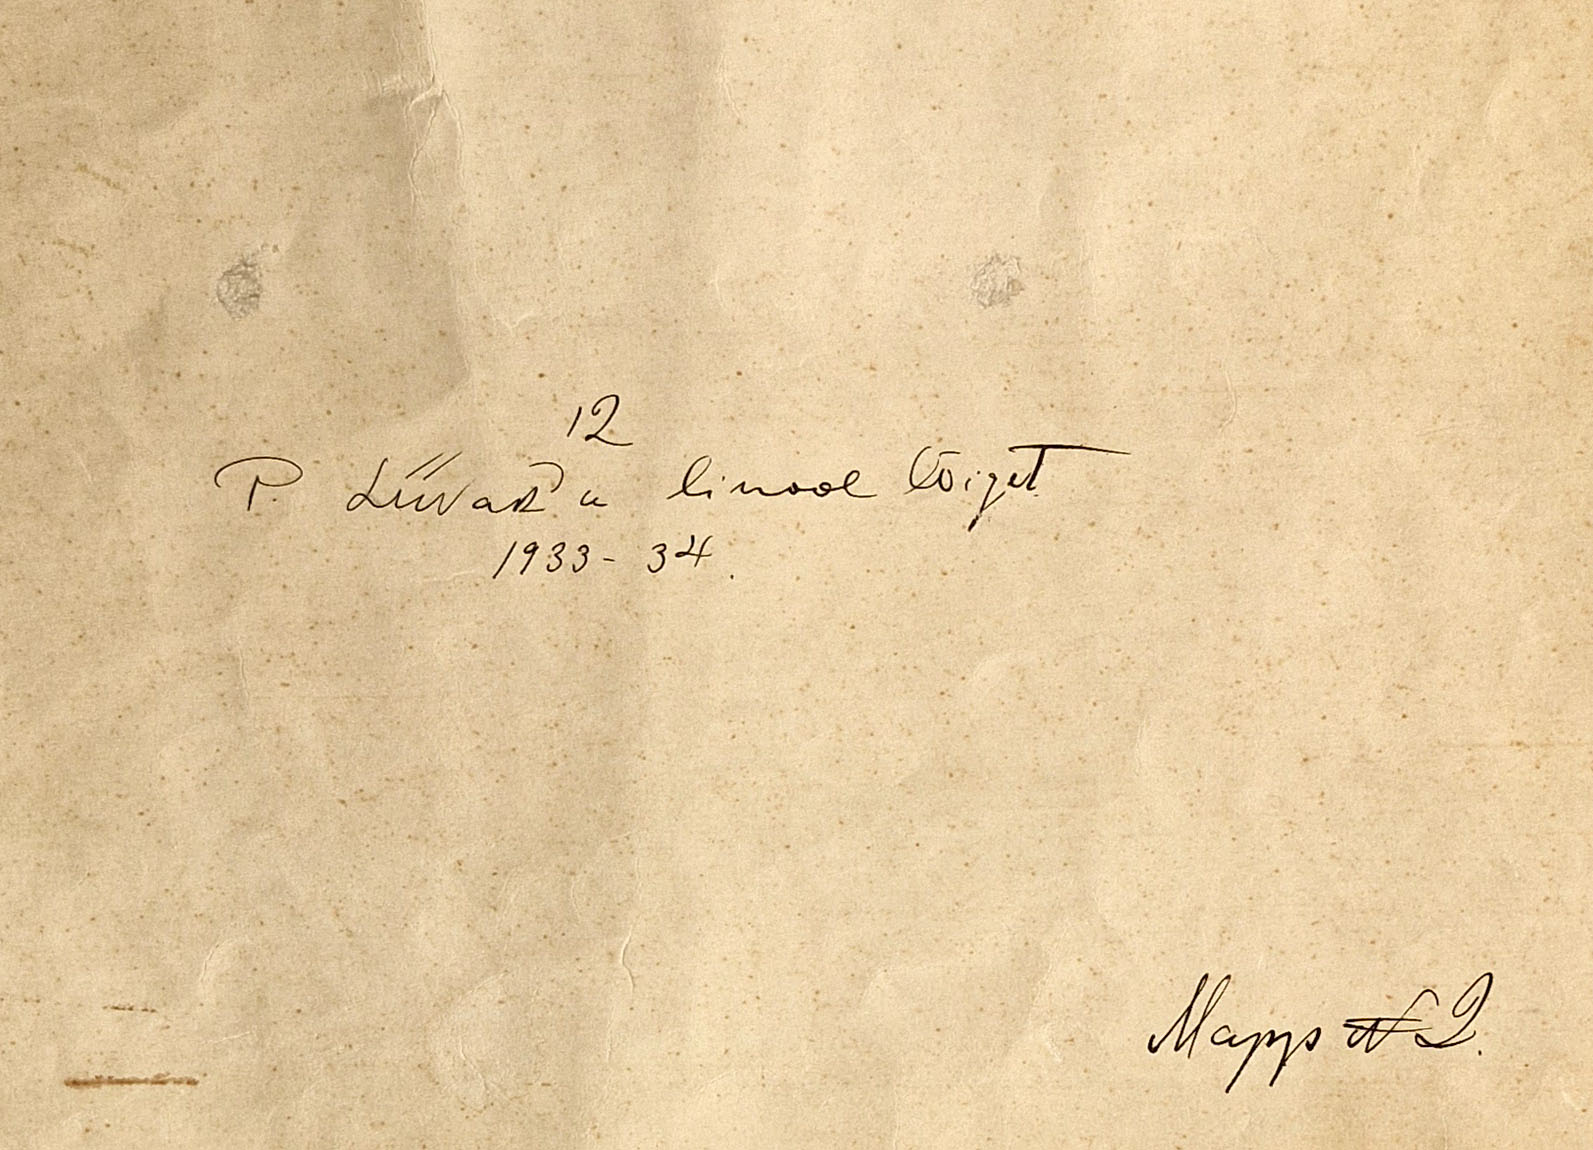 12
P. Liivak'u linool lõiget
1933-34.
Mapp N 2.